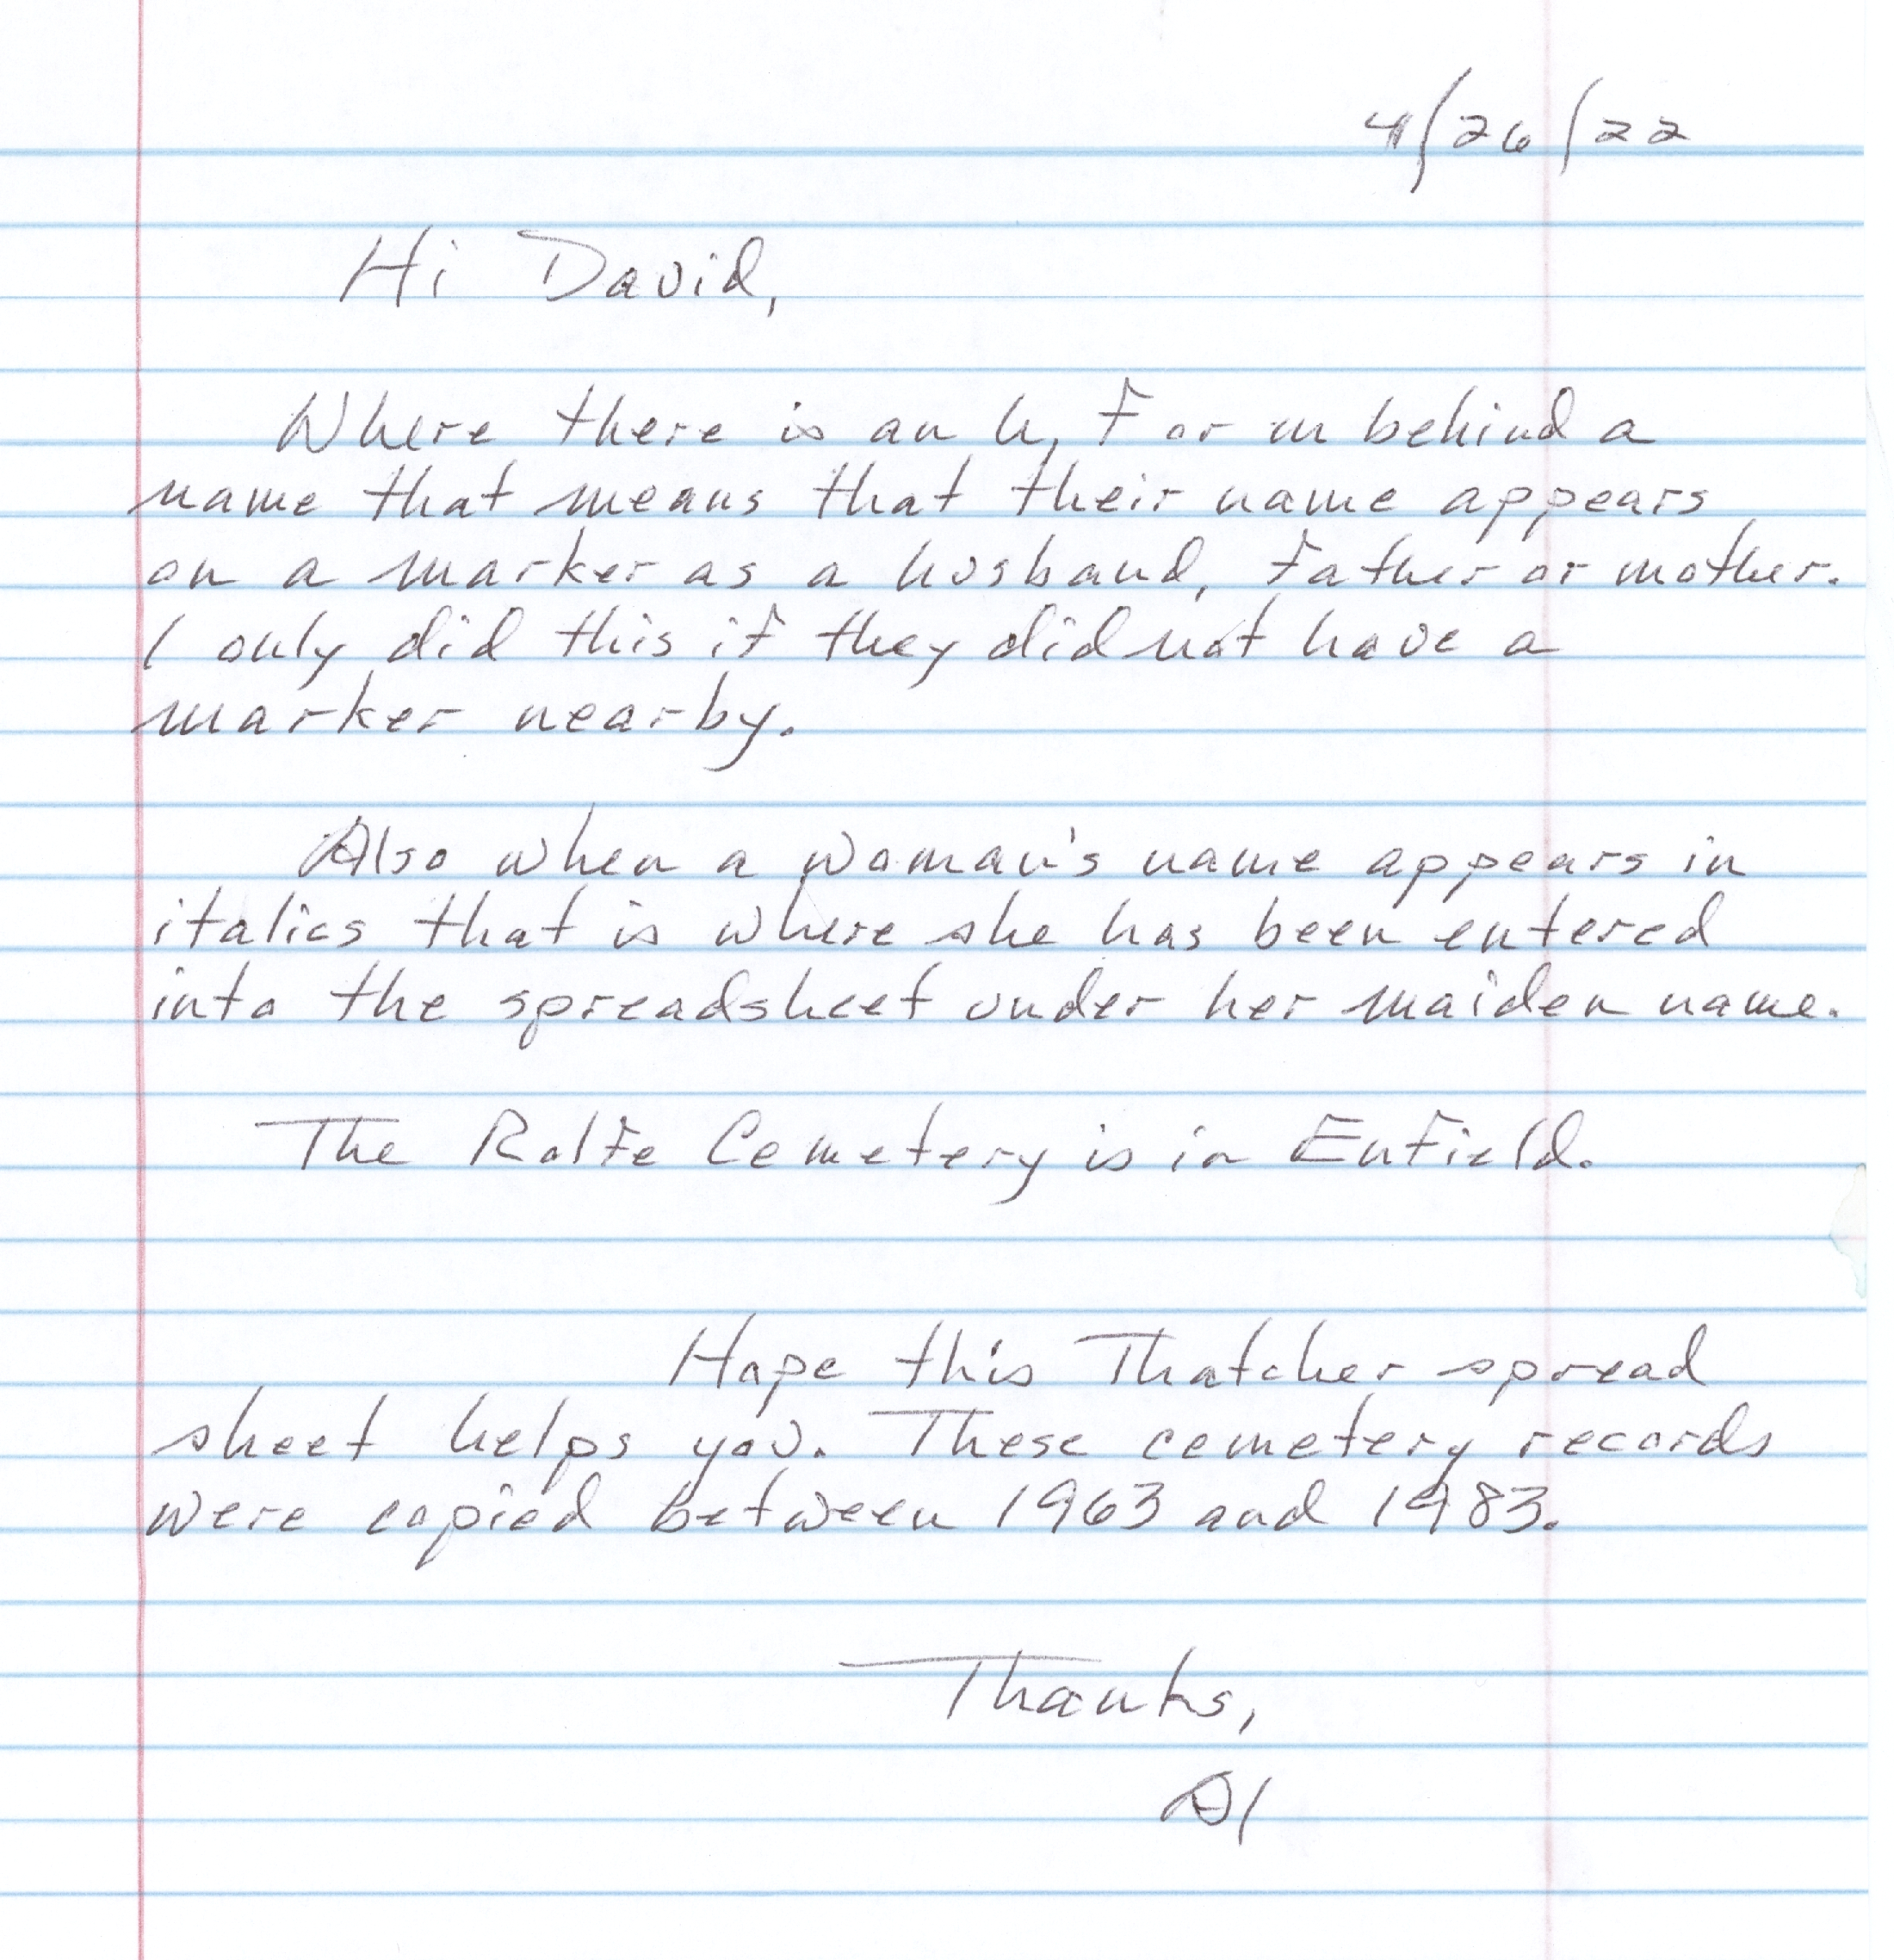 4/26/22
Hi David,
Where there is an h, f or m behind a
name that means that their name appears
on a marker as a husband, father or mother.
I only did this if they did not have a
marker nearby.
Also when a woman's name appears in
italics that is where she has been entered
into the spreadsheet under her maiden name.
The Rolfe Cemetery is in Enfield.
Hope this Thatcher spread
sheet helps you. These cemetery records
were copied between 1963 and 1983.
Thanks,
Al